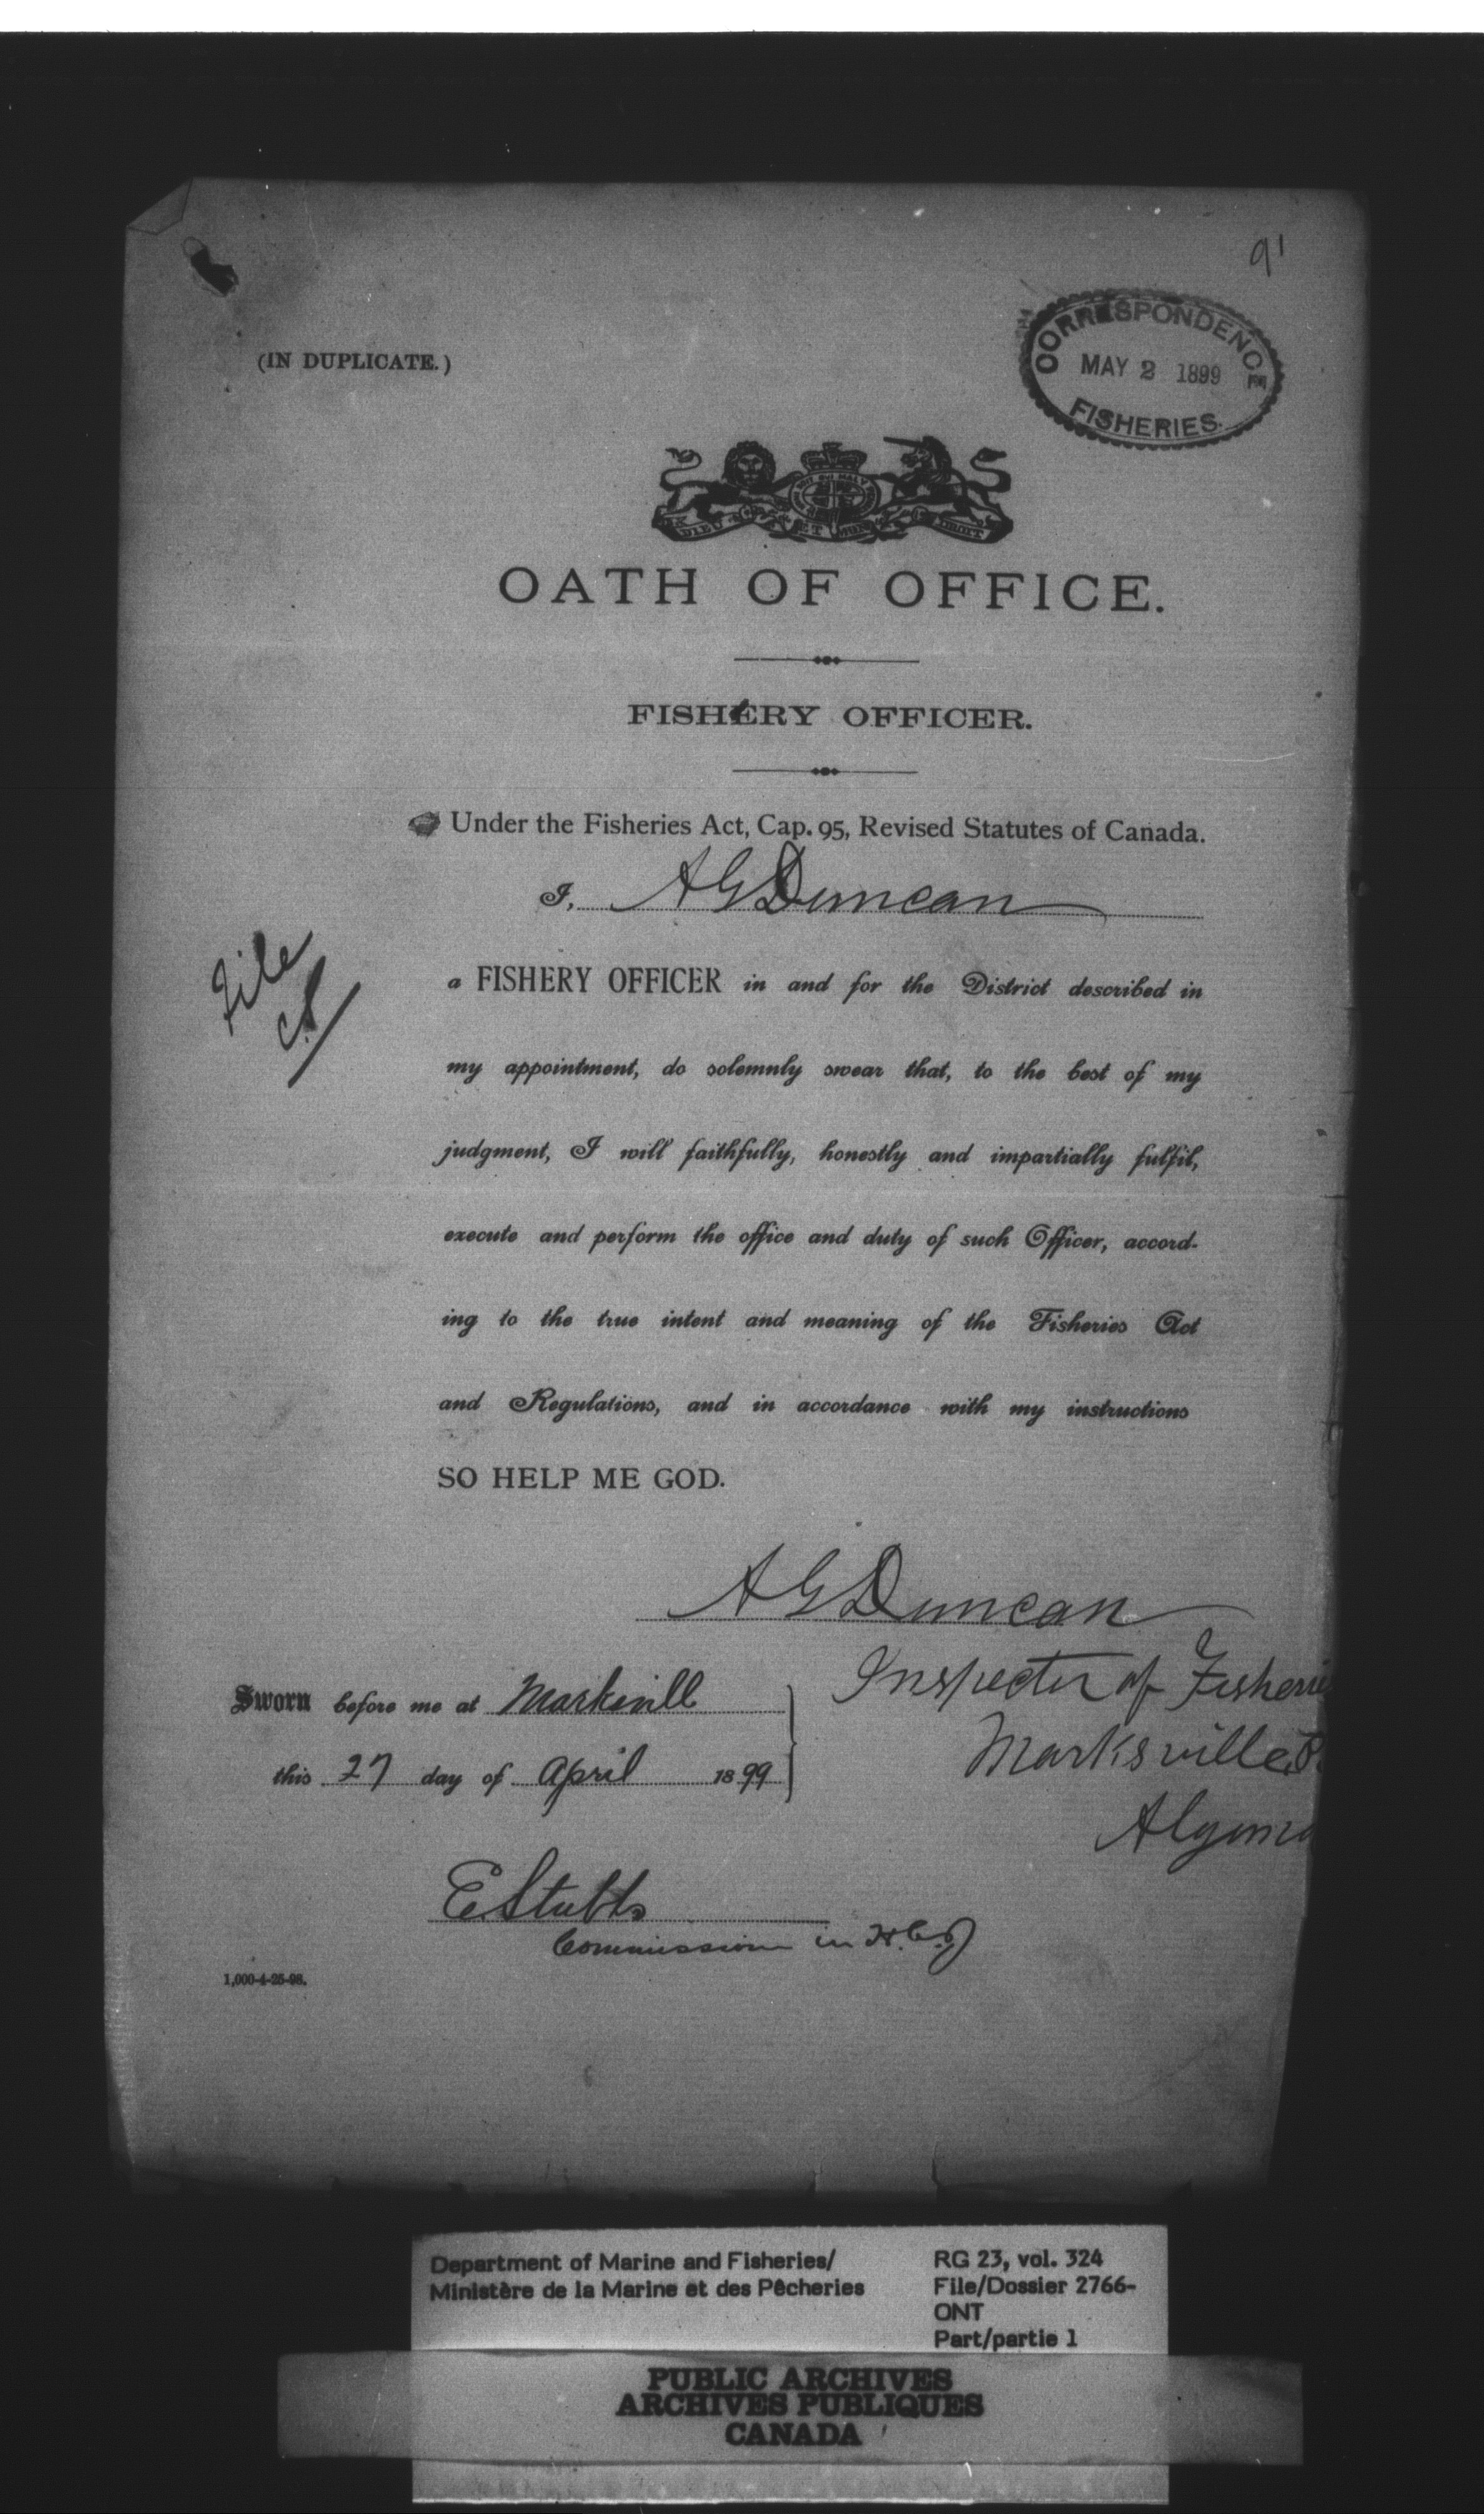 91
CORRESPONDENCE
MAY 2 1899
FISHERIES.
(IN DUPLICATE.)
DIEU ET MON DROIT
OATH OF OFFICE.
FISHERY OFFICER.
Under the Fisheries Act, Cap. 95, Revised Statutes of Canada.
I, A G Duncan
File
a FISHERY OFFICER in and for the District described in
my appointment, do solemnly swear that, to the best of my
judgment, I will faithfully, honestly and impartially fulfil,
execute and perform the office and duty of such Officer, accord-
ing to the true intent and meaning of the Fisheries Act
and Regulations, and in accordance with my instructions
SO HELP ME GOD.
A G Duncan
Inspector of Fisherie
Sworn before me at Marksvill
Marksville P.
this 27 day of April 1899
Algoma
E. Stubbs
Commission in H.C.J
1,000-4-25-98.
Department of Marine and Fisheries/
Ministère de la Marine et des Pêcheries
RG 23, vol. 324
File/Dossier 2766-
ONT
Part/partie 1
PUBLIC ARCHIVES
ARCHIVES PUBLIQUES
CANADA